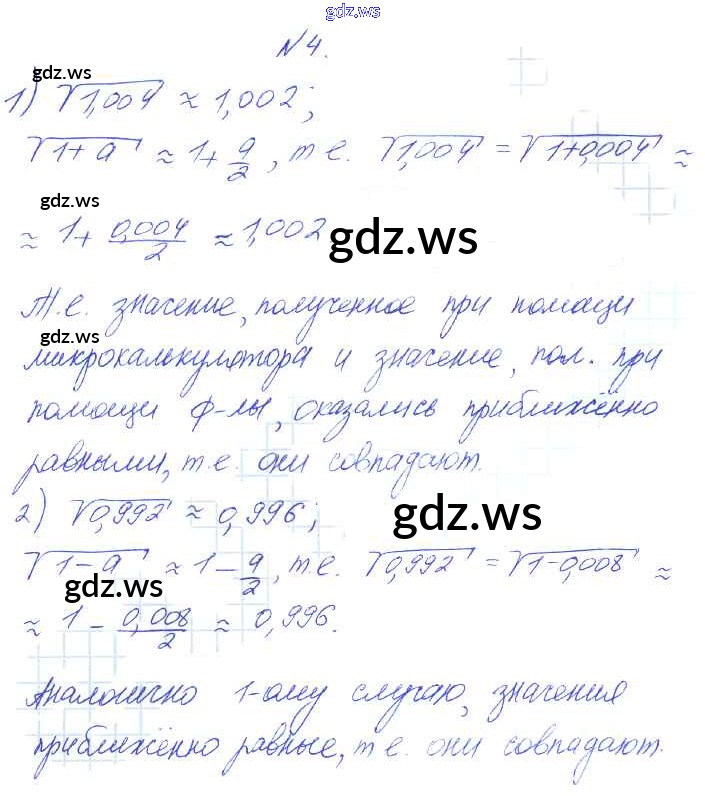 gdz.ws
№4.
gdz.ws
1) √1,004 ≈ 1,002;
√1+a ≈ 1+a/2, т.е. √1,004 = √1+0,004 ≈
gdz.ws
≈ 1+0,004/2 ≈ 1,002
gdz.ws
Т.е. значение, полученное при помощи
gdz.ws
микрокалькулятора и значение, пол. при
помощи ф-лы, оказались приближённо
равными, т.е. они совпадают.
gdz.ws
2) √0,992 ≈ 0,996;
gdz.ws
√1-a ≈ 1-a/2, т.е. √0,992 = √1-0,008 ≈
gdz.ws
≈ 1-0,008/2 ≈ 0,996.
Аналогично 1-ому случаю, значения
приближённо равные, т.е. они совпадают.